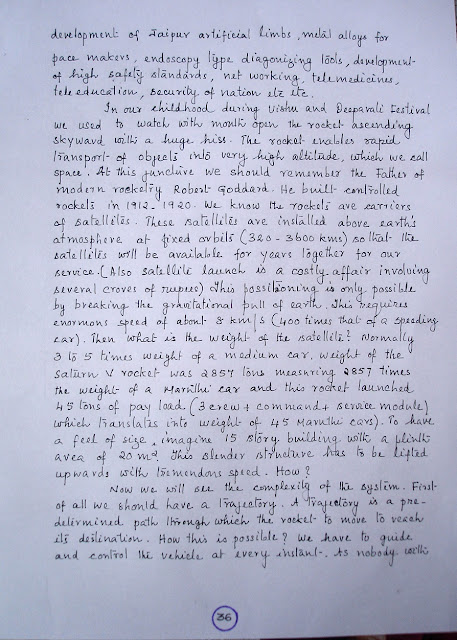 development of Jaipur artificial limbs, metal alloys for
pace makers, endoscopy type diagonizing tools, development
of high safety standards, net working, telemedicines,
tele education, security of nation etc etc.
In our childhood during Vishu and Deepavali Festival
we used to watch with mouth open the rocket ascending
skyward with a huge hiss. The rocket enables rapid
transport of objects into very high altitude, which we call
space. At this juncture we should remember the Father of
modern rocketry Robert Goddard. He built controlled
rockets in 1912-1920. We know the rockets are carriers
of satellites. These satellites are installed above earth's
atmosphere at fixed orbits (320 - 3600 kms) so that the
satellites will be available for years together for our
service. (Also satellite launch is a costly affair involving
several crores of rupees) This positioning is only possible
by breaking the gravitational pull of earth. This requires
enormous speed of about 8 km/s (400 times that of a speeding
car). Then what is the weight of the satellite? Normally
3 to 5 times weight of a medium car, weight of the
Saturn V rocket was 2857 tons measuring 2857 times
the weight of a Maruthi car and this rocket launched
45 tons of pay load (3 crew + command + service module)
which translates into weight of 45 Maruthi cars). To have
a feel of size, imagine 15 story building with a plinth
area of 20 m². This slender structure has to be lifted
upwards with tremendous speed. How?
Now we will see the complexity of the system. First
of all we should have a trajectory. A trajectory is a pre-
determined path through which the rocket to move to reach
its destination. How this is possible? We have to guide
and control the vehicle at every instant. As nobody with
36